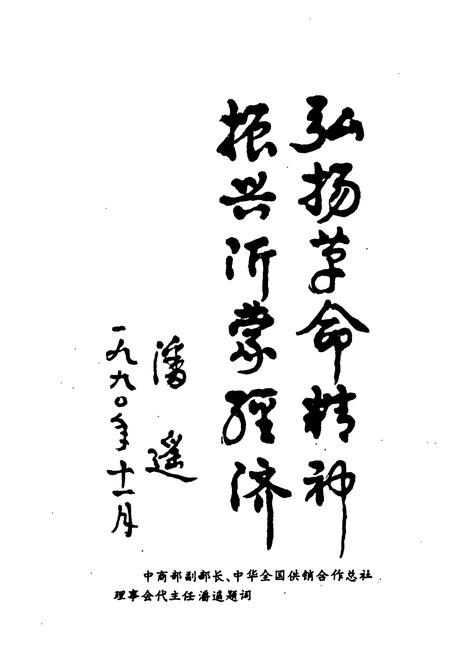 弘扬革命精神
振兴沂蒙经济
潘遥
一九九〇年十一月
中商部副部长、中华全国供销合作总社
理事会代主任潘遥题词